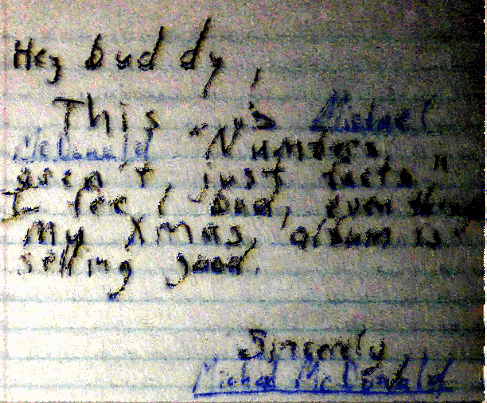 Hey buddy,
This is Michael
McDonald "Numbers
aren't just facts"
I feel bad, even tho
my Xmas album is
selling good.
Sincerely,
Michael McDonald